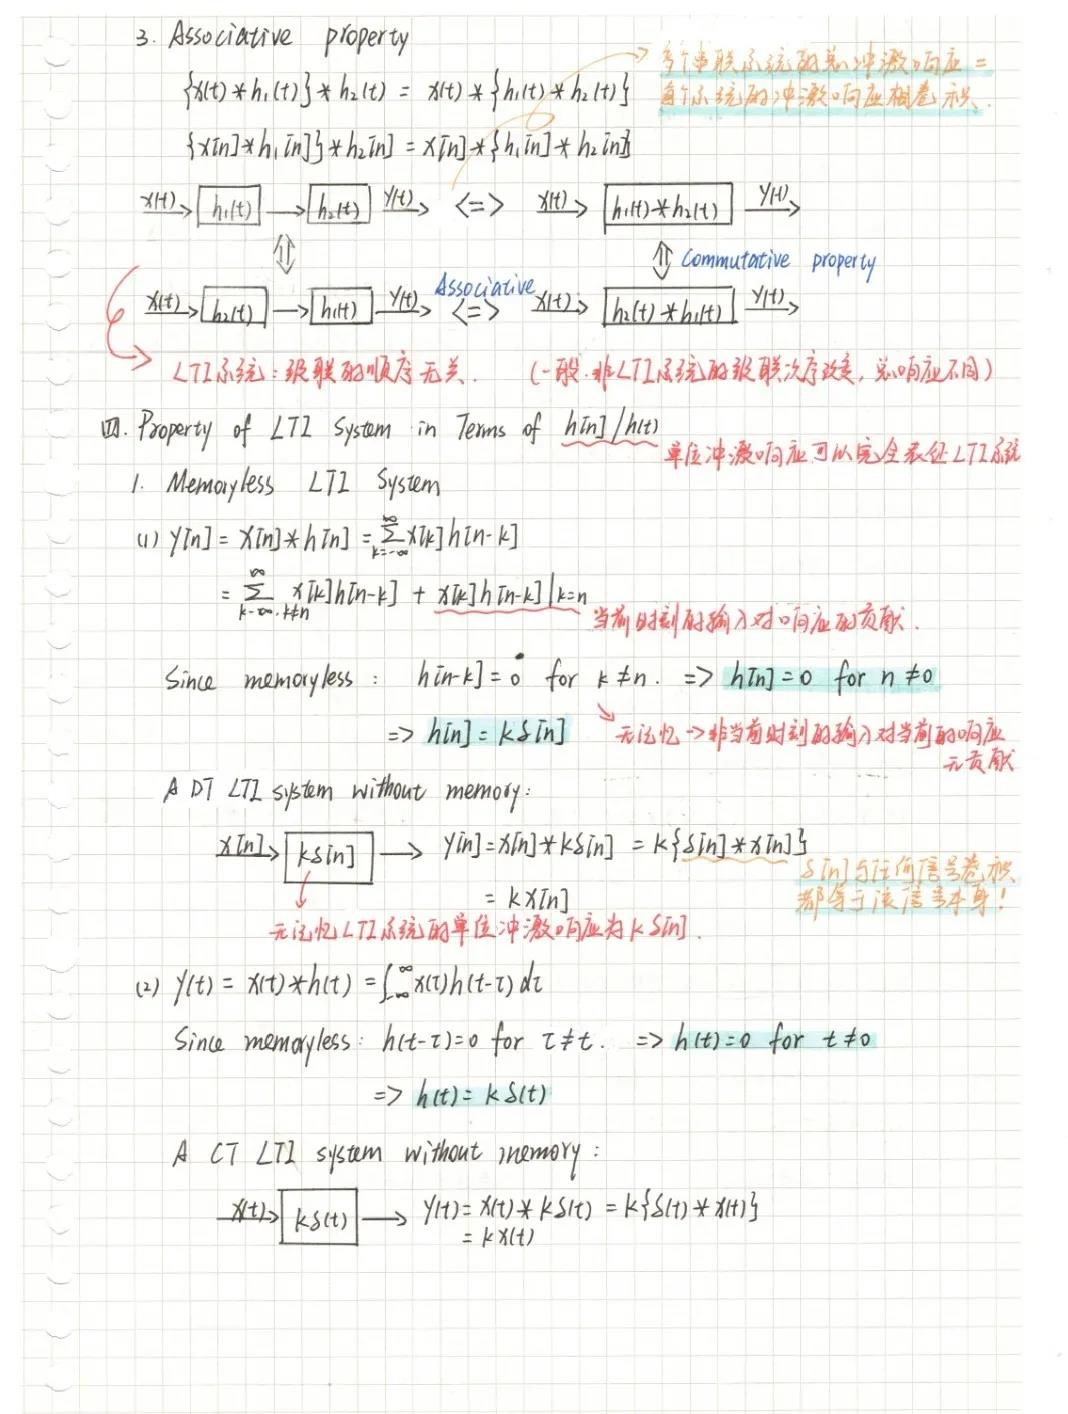 3. Associative property
{x(t)*h₁(t)}*h₂(t) = x(t)*{h₁(t)*h₂(t)}
多个串联系统的总冲激响应=
每个系统的冲激响应相卷积.
{x[n]*h₁[n]}*h₂[n] = x[n]*{h₁[n]*h₂[n]}
x(t) → h₁(t) → h₂(t) y(t) → <=> x(t) → h₁(t)*h₂(t) y(t) →
⇕ ⇕ Commutative property
x(t) → h₂(t) → h₁(t) y(t) → Associative <=> x(t) → h₂(t)*h₁(t) y(t) →
LTI系统:级联的顺序无关. (一般.非LTI系统的级联次序改变,总响应不同)
四. Property of LTI System in Terms of h[n]/h(t)
单位冲激响应可以完全表征LTI系统
1. Memoryless LTI System
(1) y[n] = x[n]*h[n] = ∑_{k=-∞}^{∞} x[k]h[n-k]
= ∑_{k=-∞. k≠n}^{∞} x[k]h[n-k] + x[k]h[n-k]|k=n
当前时刻的输入对响应的贡献.
Since memoryless: h[n-k]=0 for k≠n. => h[n]=0 for n≠0
=> h[n] = kδ[n]
无记忆->非当前时刻的输入对当前的响应
无贡献
A DT LTI system without memory:
x[n] → kδ[n] → y[n]=x[n]*kδ[n] = k{δ[n]*x[n]}
= kx[n]
δ[n]与任何信号卷积
都等于该信号本身!
无记忆LTI系统的单位冲激响应为kδ[n].
(2) y(t) = x(t)*h(t) = ∫_{-∞}^{∞} x(τ)h(t-τ)dτ
Since memoryless: h(t-τ)=0 for τ≠t. => h(t)=0 for t≠0
=> h(t)= kδ(t)
A CT LTI system without memory:
x(t) → kδ(t) → y(t)= x(t)*kδ(t) = k{δ(t)*x(t)}
= kx(t)